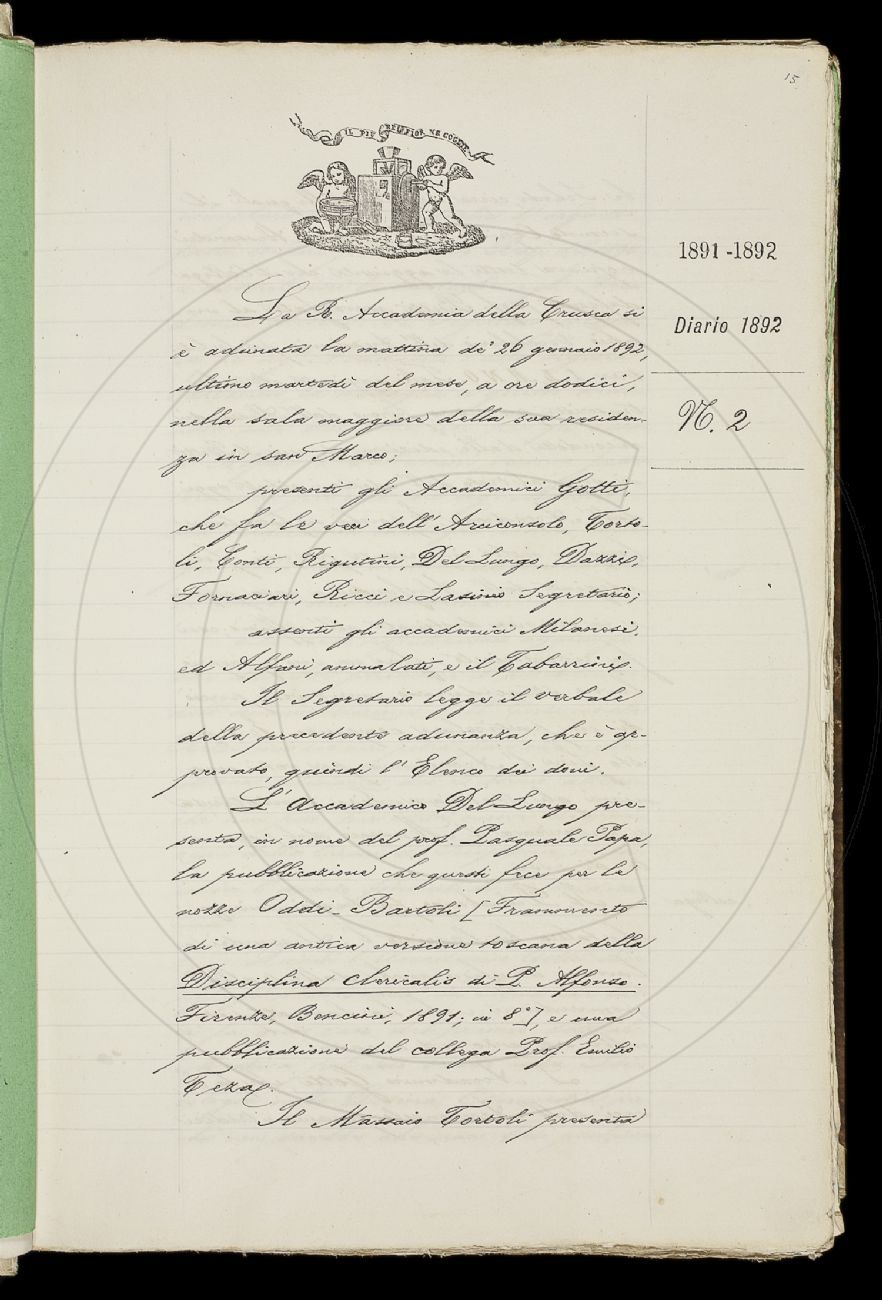 15
IL PIÙ BEL FIOR NE COGLIE
1891-1892
Diario 1892
N. 2
La R. Accademia della Crusca si
è adunata la mattina de' 26 gennaio 1892,
ultimo martedì del mese, a ore dodici,
nella sala maggiore della sua residen-
za in san Marco;
presenti gli Accademici Gotti,
che fa le veci dell'Arciconsolo, Torto-
li, Conti, Rigutini, Del Lungo, Dazzi,
Fornaciari, Ricci e Lasinio Segretario;
assenti gli accademici Milanesi,
ed Alfani, ammalati, e il Tabarrini.
Il Segretario legge il verbale
della precedente adunanza, che è ap-
provato, quindi l'Elenco dei doni.
L'Accademico Del Lungo pre-
senta, in nome del prof. Pasquale Papa,
la pubblicazione che questi fece per le
nozze Oddi-Bartoli [Frammento
di una antica versione toscana della
Disciplina clericalis di P. Alfonso.
Firenze, Bencini, 1891; in 8°], e una
pubblicazione del collega Prof. Emilio
Teza.
Il Massaio Tortoli presenta